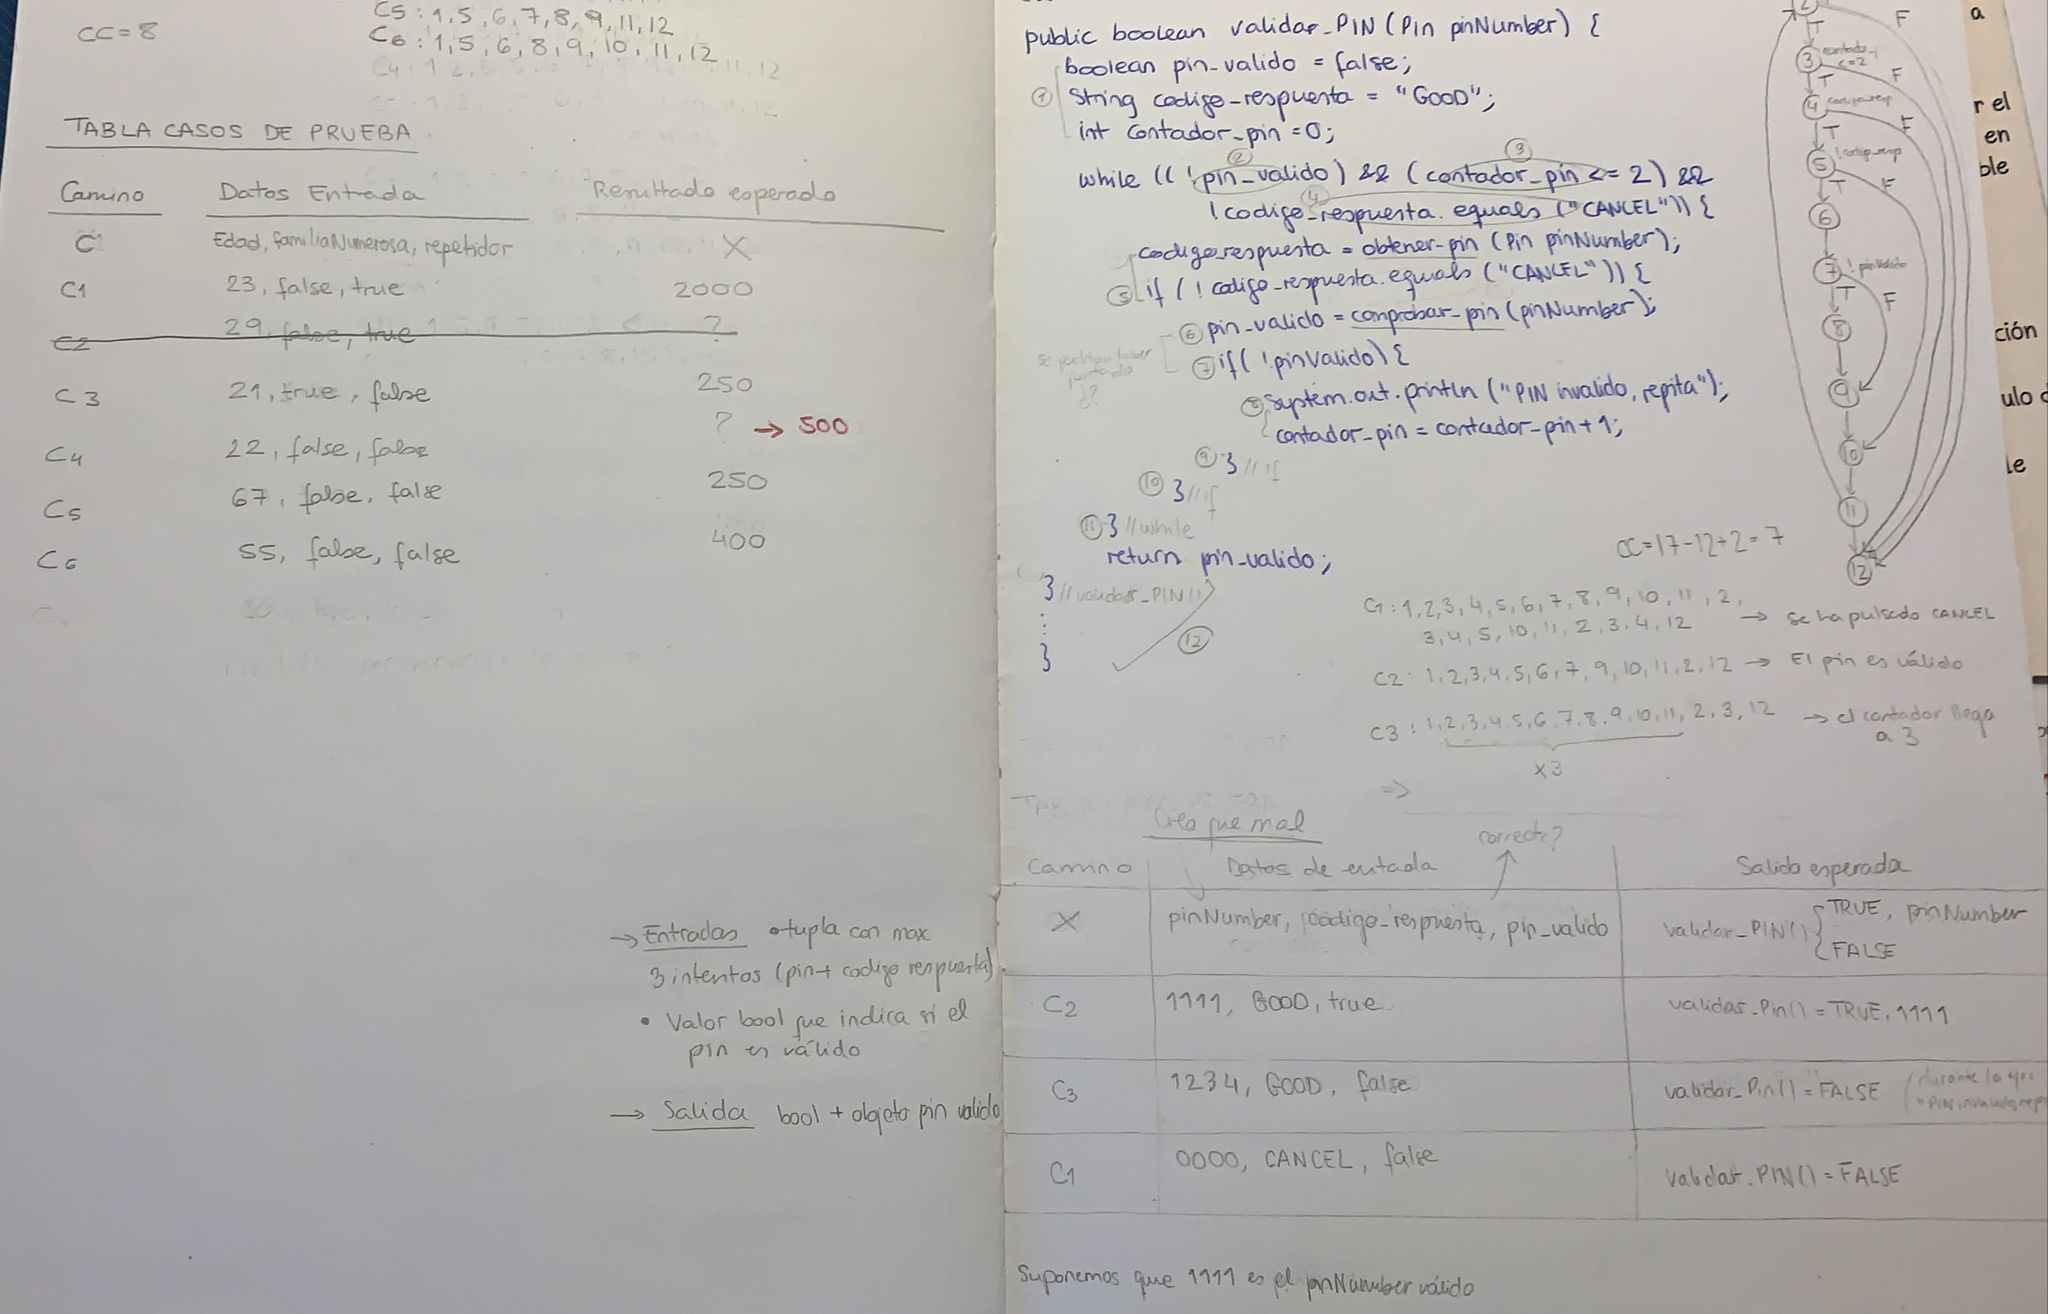 CC=8
C5: 1,5,6,7,8,9,11,12
C6: 1,5,6,8,9,10,11,12
TABLA CASOS DE PRUEBA
Camino Datos Entrada Resultado esperado
C1 Edad, familiaNumerosa, repetidor X
C1 23, false, true 2000
C2 29, false, true ?
C3 21, true, false 250
C4 22, false, false ? → 500
C5 67, false, false 250
C6 55, false, false 400
→ Entradas • tupla con max
3 intentos (pin + codigo respuesta)
• Valor bool que indica si el
pin es válido
→ Salida bool + objeto pin valido
public boolean validar_PIN (Pin pinNumber) {
boolean pin_valido = false;
① String codigo_respuesta = "GOOD";
int contador_pin = 0;
② ③
while ((!pin_valido) && (contador_pin <= 2) &&
④
!codigo_respuesta.equals("CANCEL")) {
codigo_respuesta = obtener_pin (Pin pinNumber);
⑤ if (! codigo_respuesta.equals ("CANCEL")) {
⑥ pin_valido = comprobar_pin (pinNumber);
se podrian haber
juntado
¿?
⑦ if( !pinValido) {
⑧ System.out.println ("PIN invalido, repita");
contador_pin = contador_pin + 1;
⑨ } // if
⑩ } // if
⑪ } // while
return pin_valido;
} // validar_PIN()
⋮
}
⑫
2
T F
3 contador
c=2
T F
4 codigo_resp
T F
5 !codigo_resp
T F
6
7 !pinValido
T F
8
9
10
11
12
CC=17-12+2=7
C1: 1,2,3,4,5,6,7,8,9,10,11,2,
3,4,5,10,11,2,3,4,12 → Se ha pulsado CANCEL
C2: 1,2,3,4,5,6,7,9,10,11,2,12 → El pin es válido
C3: 1,2,3,4,5,6,7,8,9,10,11,2,3,12 → el contador llega
a 3
x3
⇒
Creo que mal
correcto?
Camino Datos de entada Salida esperada
X pinNumber, codigo_respuesta, pin_valido validar_PIN() { TRUE, pinNumber
FALSE
C2 1111, GOOD, true validar_Pin() = TRUE, 1111
C3 1234, GOOD, false validar_Pin() = FALSE (durante la
"PIN invalido, rep
C1 0000, CANCEL, false validar_PIN() = FALSE
Suponemos que 1111 es el pinNumber válido
a
r el
en
ble
ción
ulo d
le